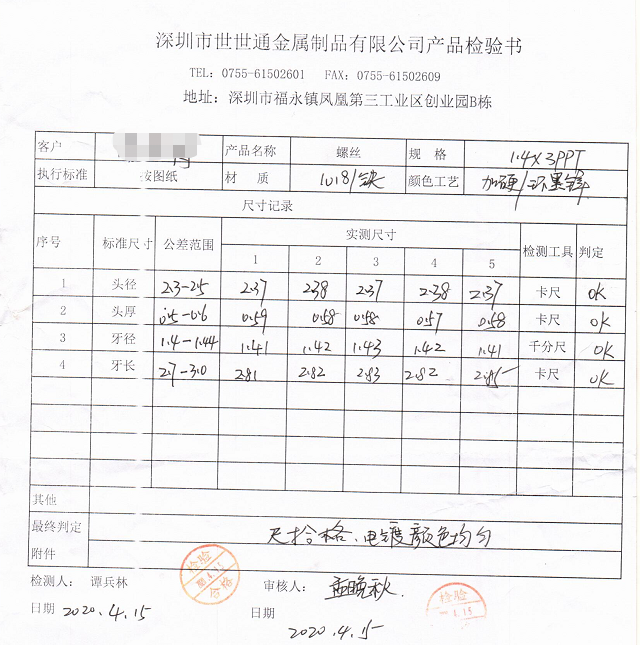 深圳市世世通金属制品有限公司产品检验书
TEL: 0755-61502601 FAX: 0755-61502609
地址: 深圳市福永镇凤凰第三工业区创业园B栋
客户 产品名称 螺丝 规 格 1.4×3PPT
执行标准 按图纸 材 质 1018/铁 颜色工艺 加硬/环黑锌
尺寸记录
序号 标准尺寸 公差范围 实测尺寸 检测工具 判定
1 2 3 4 5
1 头径 2.3-2.5 2.37 2.38 2.37 2.38 2.37 卡尺 OK
2 头厚 0.5-0.6 0.59 0.58 0.58 0.57 0.58 卡尺 OK
3 牙径 1.4-1.44 1.41 1.42 1.43 1.42 1.41 千分尺 OK
4 牙长 2.7-3.0 2.81 2.82 2.83 2.82 2.85 卡尺 OK
其他
最终判定 尺寸合格、电镀颜色均匀
附件
检测人: 谭兵林 检验 合格 审核人: 孟晚秋. 检验
日期 2020.4.15 日期
2020.4.15